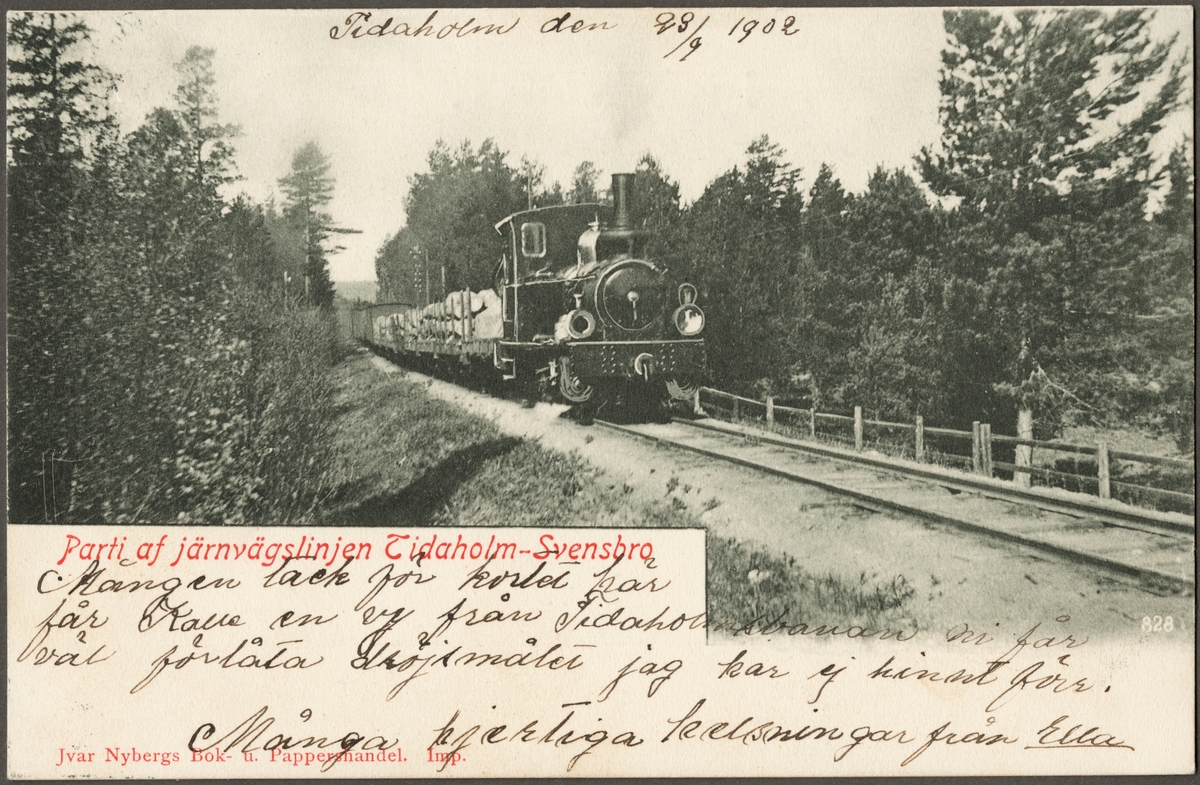 Tidaholm den 23/9 1902
Parti af järnvägslinjen Tidaholm-Svensbro
Mången tack för kortet här
får Kalle en vy från Tidaholmsbanan ni får
väl förlåta dröjsmålet jag har ej hinnt förr.
828
Många hjertiga helsningar från Ella
Jvar Nybergs Bok- u. Pappershandel. Imp.